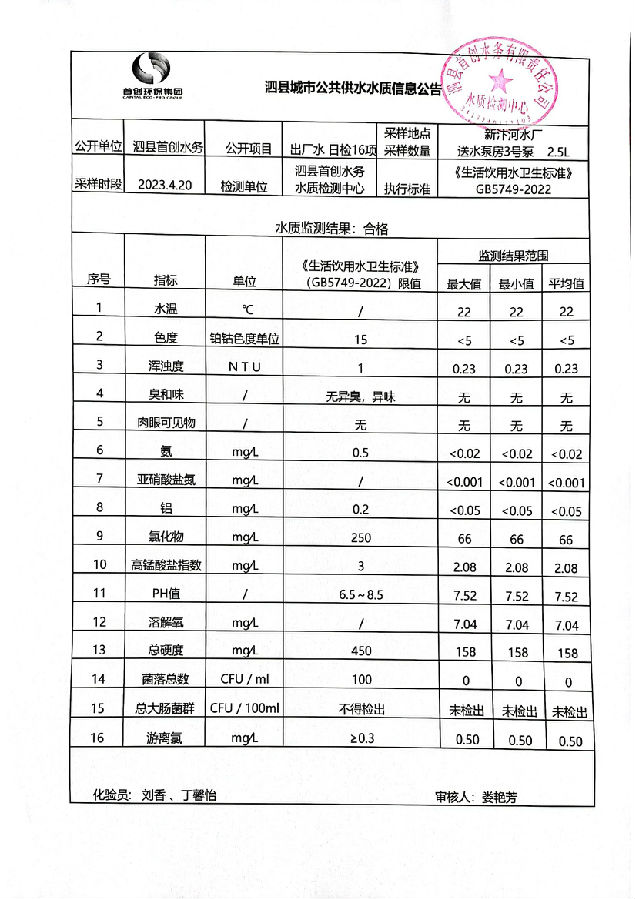 首创环保集团
CAPITAL ECO-PRO GROUP
泗县城市公共供水水质信息公告
泗县首创水务有限责任公司
水质检测中心
公开单位 泗县首创水务 公开项目 出厂水 日检16项 采样地点 采样数量 新汴河水厂 送水泵房3号泵 2.5L
采样时段 2023.4.20 检测单位 泗县首创水务 水质检测中心 执行标准 《生活饮用水卫生标准》 GB5749-2022
水质监测结果：合格
序号 指标 单位 《生活饮用水卫生标准》 （GB5749-2022）限值 监测结果范围
最大值 最小值 平均值
1 水温 ℃ / 22 22 22
2 色度 铂钴色度单位 15 <5 <5 <5
3 浑浊度 NTU 1 0.23 0.23 0.23
4 臭和味 / 无异臭，异味 无 无 无
5 肉眼可见物 / 无 无 无 无
6 氨 mg/L 0.5 <0.02 <0.02 <0.02
7 亚硝酸盐氮 mg/L / <0.001 <0.001 <0.001
8 铝 mg/L 0.2 <0.05 <0.05 <0.05
9 氯化物 mg/L 250 66 66 66
10 高锰酸盐指数 mg/L 3 2.08 2.08 2.08
11 PH值 / 6.5～8.5 7.52 7.52 7.52
12 溶解氧 mg/L / 7.04 7.04 7.04
13 总硬度 mg/L 450 158 158 158
14 菌落总数 CFU / ml 100 0 0 0
15 总大肠菌群 CFU / 100ml 不得检出 未检出 未检出 未检出
16 游离氯 mg/L ≥0.3 0.50 0.50 0.50
化验员：刘香、丁馨怡 审核人：娄艳芳